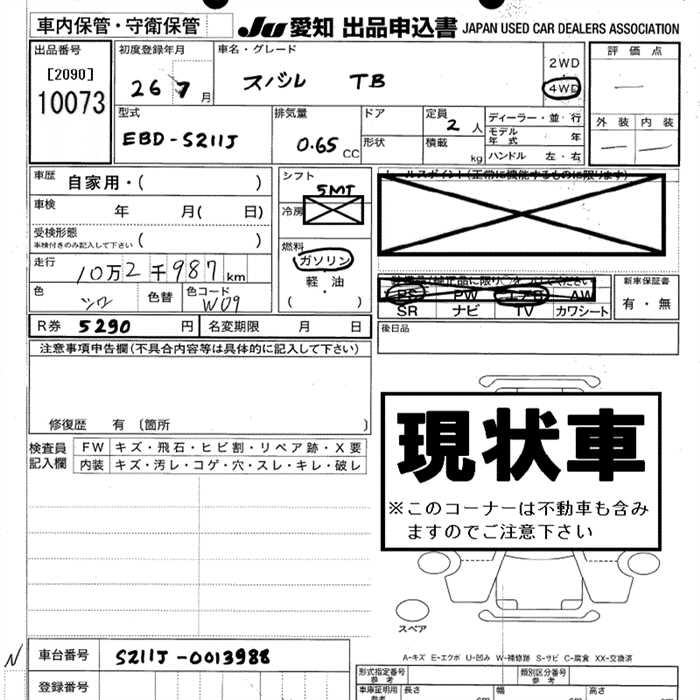 車内保管・守衛保管
JU 愛知 出品申込書 JAPAN USED CAR DEALERS ASSOCIATION
出品番号 初度登録年月 車名・グレード 評価点
[2090] 2WD
10073 26 7月 スバル TB 4WD ―
型式 排気量 ドア 定員 ディーラー・並・行 外装 内装
2人 モデル年式 年
EBD-S211J 0.65 CC 形状 積載 kg ハンドル 左・右 ― ―
車歴 自家用・( ) シフト 5MT セールスポイント(正常に機能するものに限ります)
車検 年 月( 日) 冷房
受検形態 車検付きのみ記入して下さい ( ) 燃料
走行 10万2千987km ガソリン
軽・油
色 シロ 色替 色コード W09 ( ・ )
PS PW エアB AW 新車保証書
SR ナビ TV カワシート 有・無
R券 5290円 名変期限 月 日 後日品
注意事項申告欄(不具合内容等は具体的に記入して下さい)
修復歴 有〔箇所 〕
現状車
※このコーナーは不動車も含み
ますのでご注意下さい
検査員記入欄 FW キズ・飛石・ヒビ割・リペア跡・X要
内装 キズ・汚レ・コゲ・穴・スレ・キレ・破レ
スペア
A-キズ E-エクボ U-凹み W-補修跡 S-サビ C-腐食 XX-交換済
N 車台番号 S211J-0013988
登録番号
形式指定番号 参考 類別区分番号 参考
車庫証明用 参考 長さ cm 幅 cm 高さ cm